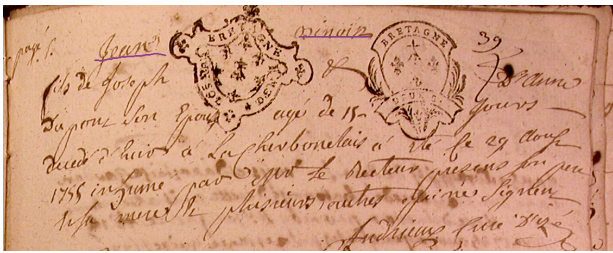 page 1. Jean pinois 39
BRETAGNE
BRETAGNE
fils de Joseph & d'anne
dupont son Epouse agé de 15 Jours
decedé d'hier à La Cherbonelais a été ce 29 aoust
1755 inhumé par le Recteur presens son pere
& sa mere & plusieurs autres qui ne signent
Andrieux Curé D'izé